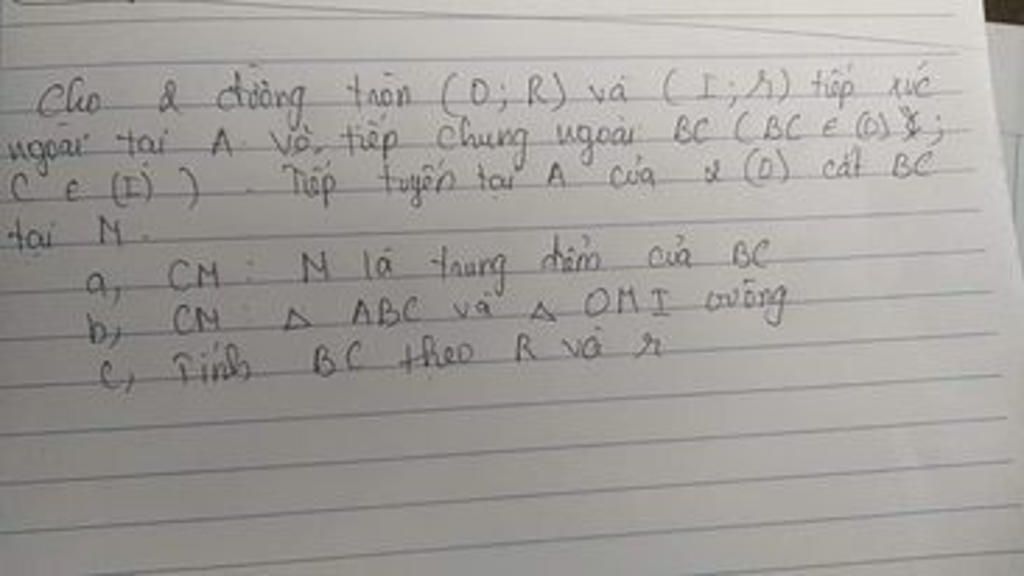 Cho 2 đường tròn (O; R) và (I; r) tiếp xúc
ngoài tại A. Vẽ tiếp chung ngoài BC (BC ∈ (O);
C ∈ (I)). Tiếp tuyến tại A của (O) cắt BC
tại M.
a, CM: M là trung điểm của BC
b, CM: Δ ABC và Δ OMI vuông
c, Tính BC theo R và r